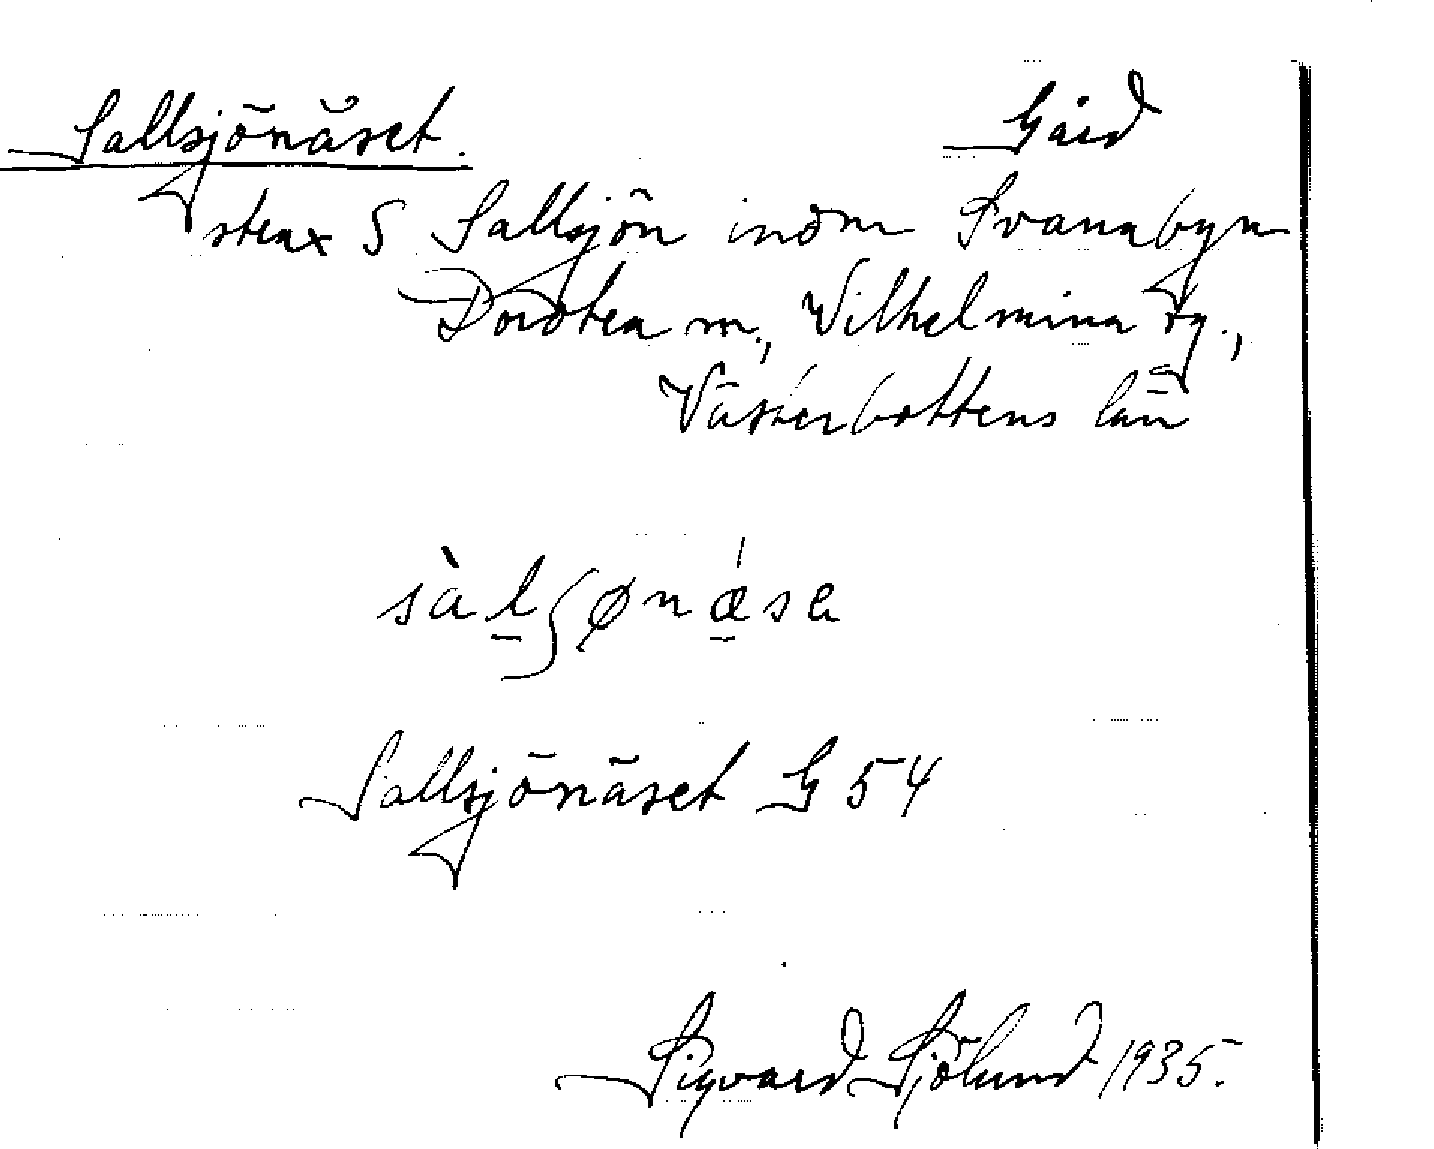 Sallsjönäset. Gård
strax S Sallsjön inom Svanabyn
Dorotea sn., Vilhelmina tg.,
Västerbottens län
sàlʃønǽsə
Sallsjönäset G 54
Sigvard Sjölund 1935.